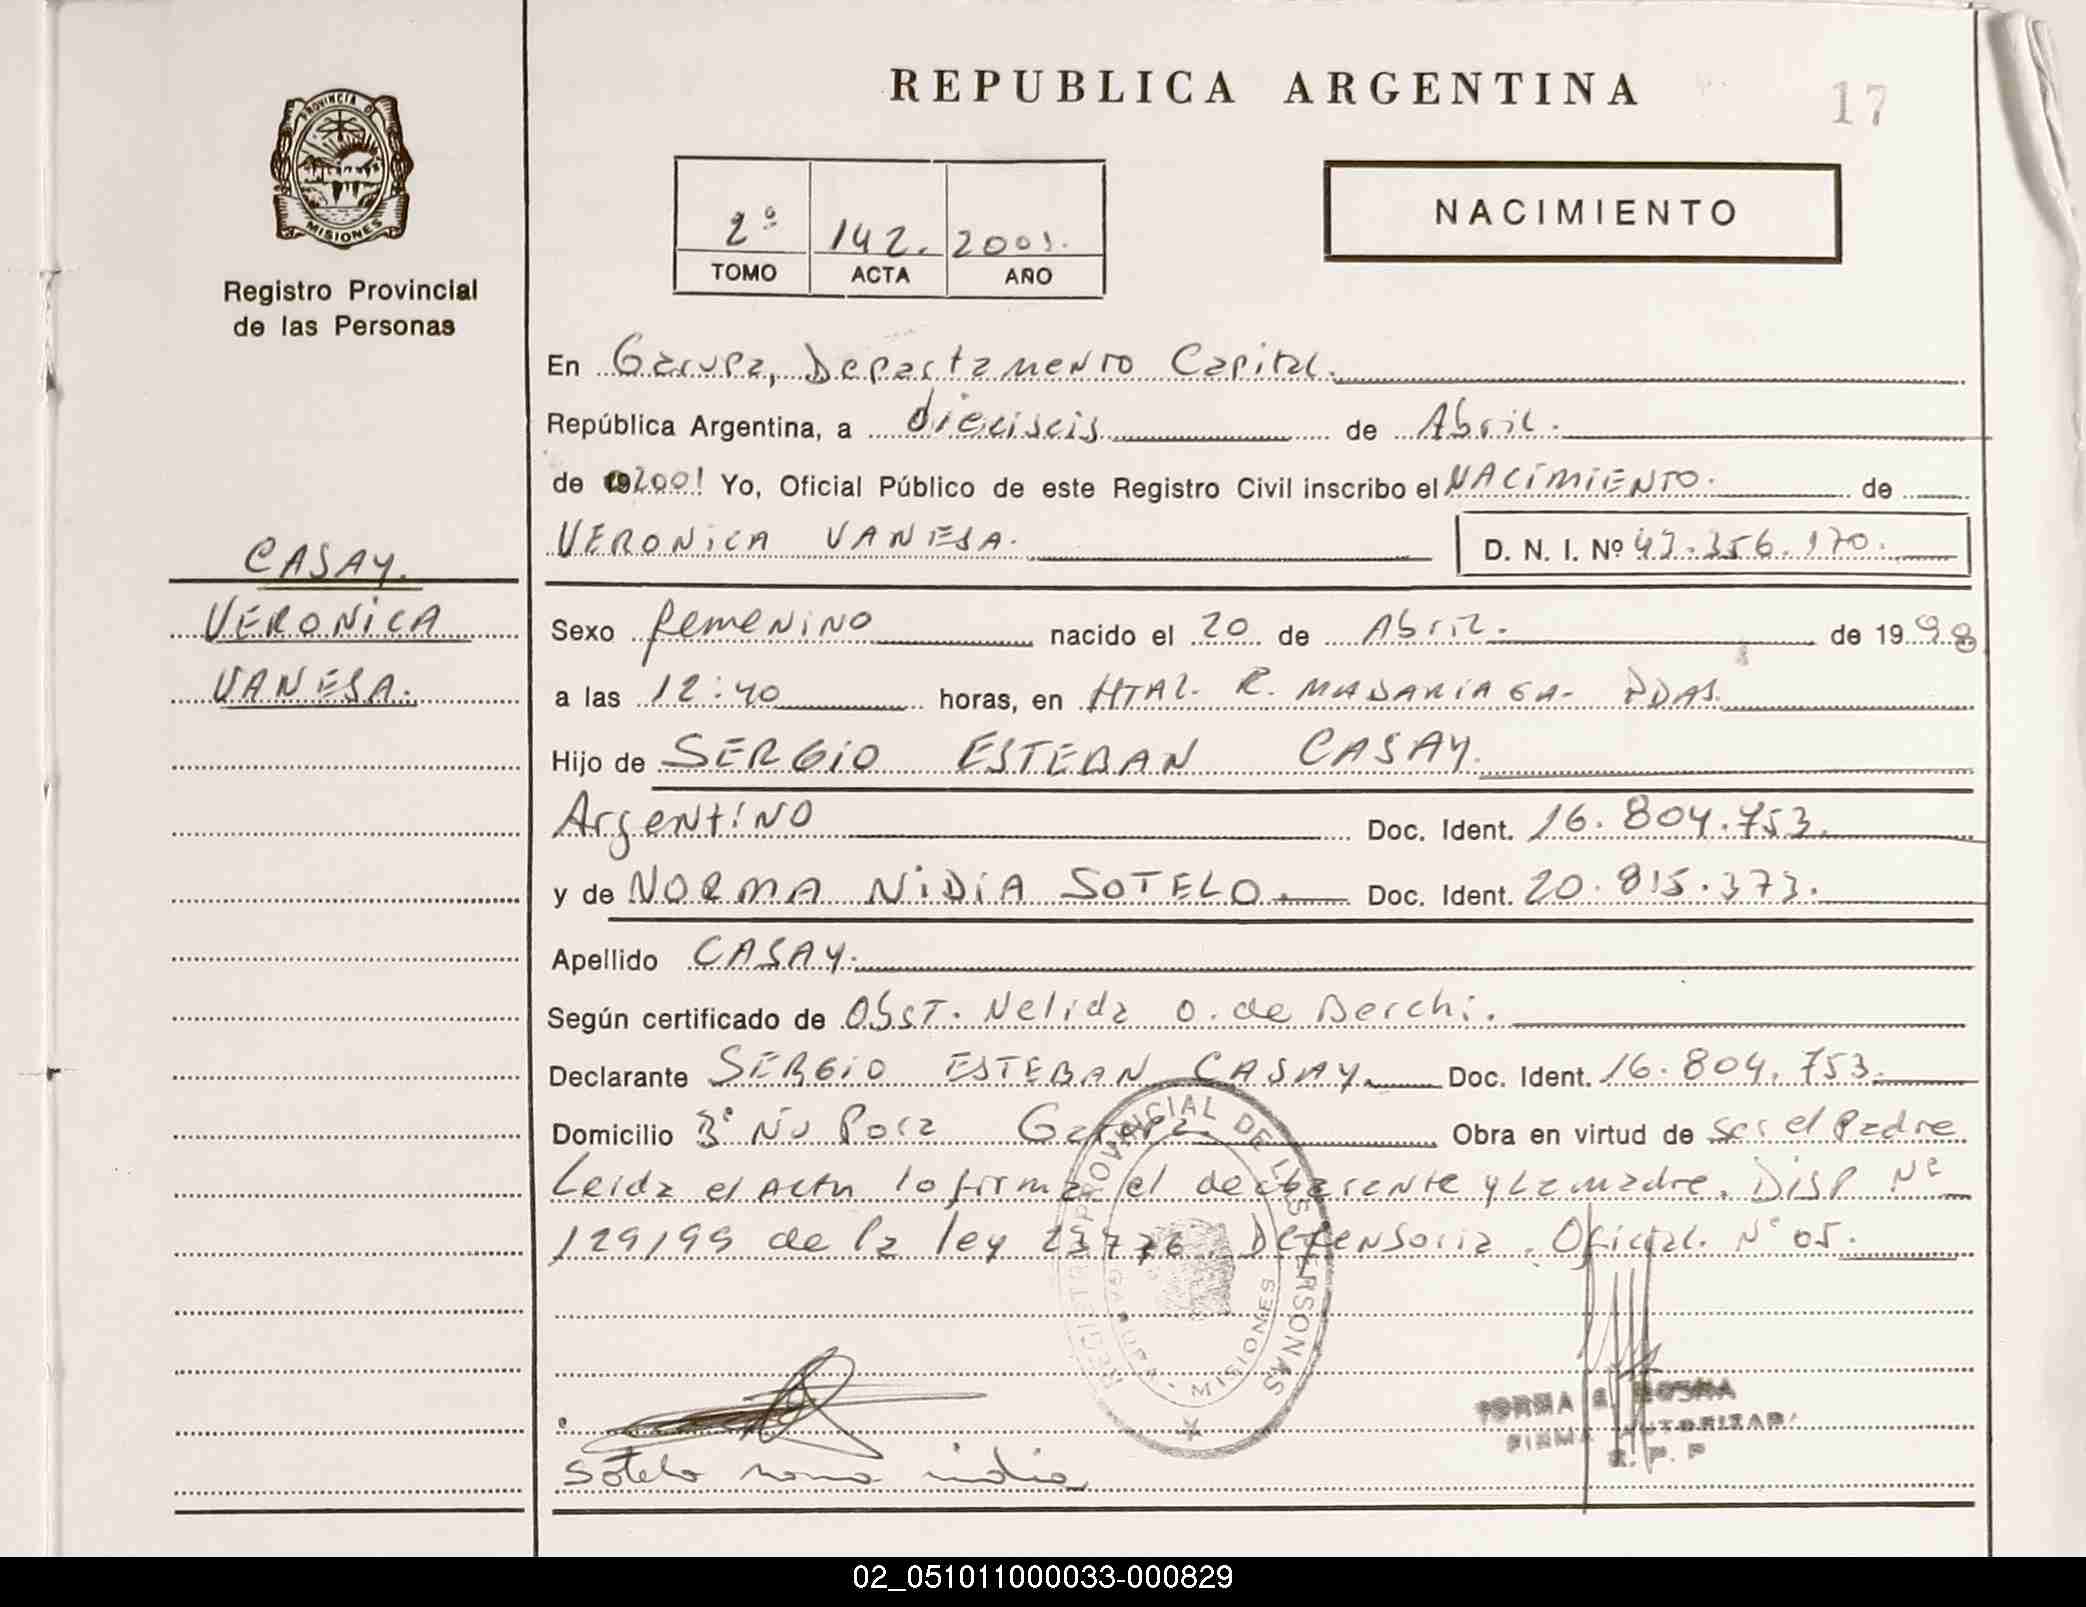 REPUBLICA ARGENTINA
17
PROVINCIA DE
MISIONES
Registro Provincial
de las Personas
2º 142. 2001.
TOMO ACTA AÑO
NACIMIENTO
En Garupa, Departamento Capital.
República Argentina, a dieciseis de Abril.
de 2001 Yo, Oficial Público de este Registro Civil inscribo el NACIMIENTO. de
VERONICA VANESA. D. N. I. Nº 43.356.170.
CASAY.
VERONICA
VANESA.
Sexo femenino nacido el 20 de Abril. de 1998
a las 12:40 horas, en HTAL. R. MADARIAGA- PDAS.
Hijo de SERGIO ESTEBAN CASAY.
Argentino Doc. Ident. 16.804.753.
y de NORMA NIDIA SOTELO. Doc. Ident. 20.815.373.
Apellido CASAY.
Según certificado de Obst. Nelida O. de Berchi.
Declarante SERGIO ESTEBAN CASAY. Doc. Ident. 16.804.753.
Domicilio Bº Ñu Pora Garupa Obra en virtud de ser el Padre
Leida el Acta lo firma el declarante y la madre. Disp Nº
129/99 de la ley 23776. Defensoria. Oficial. Nº 05.
REGISTRO PROVINCIAL DE LAS PERSONAS
MISIONES
FIRMA AUTORIZADA
R. P. P
Sotelo norma nidia
02_051011000033-000829